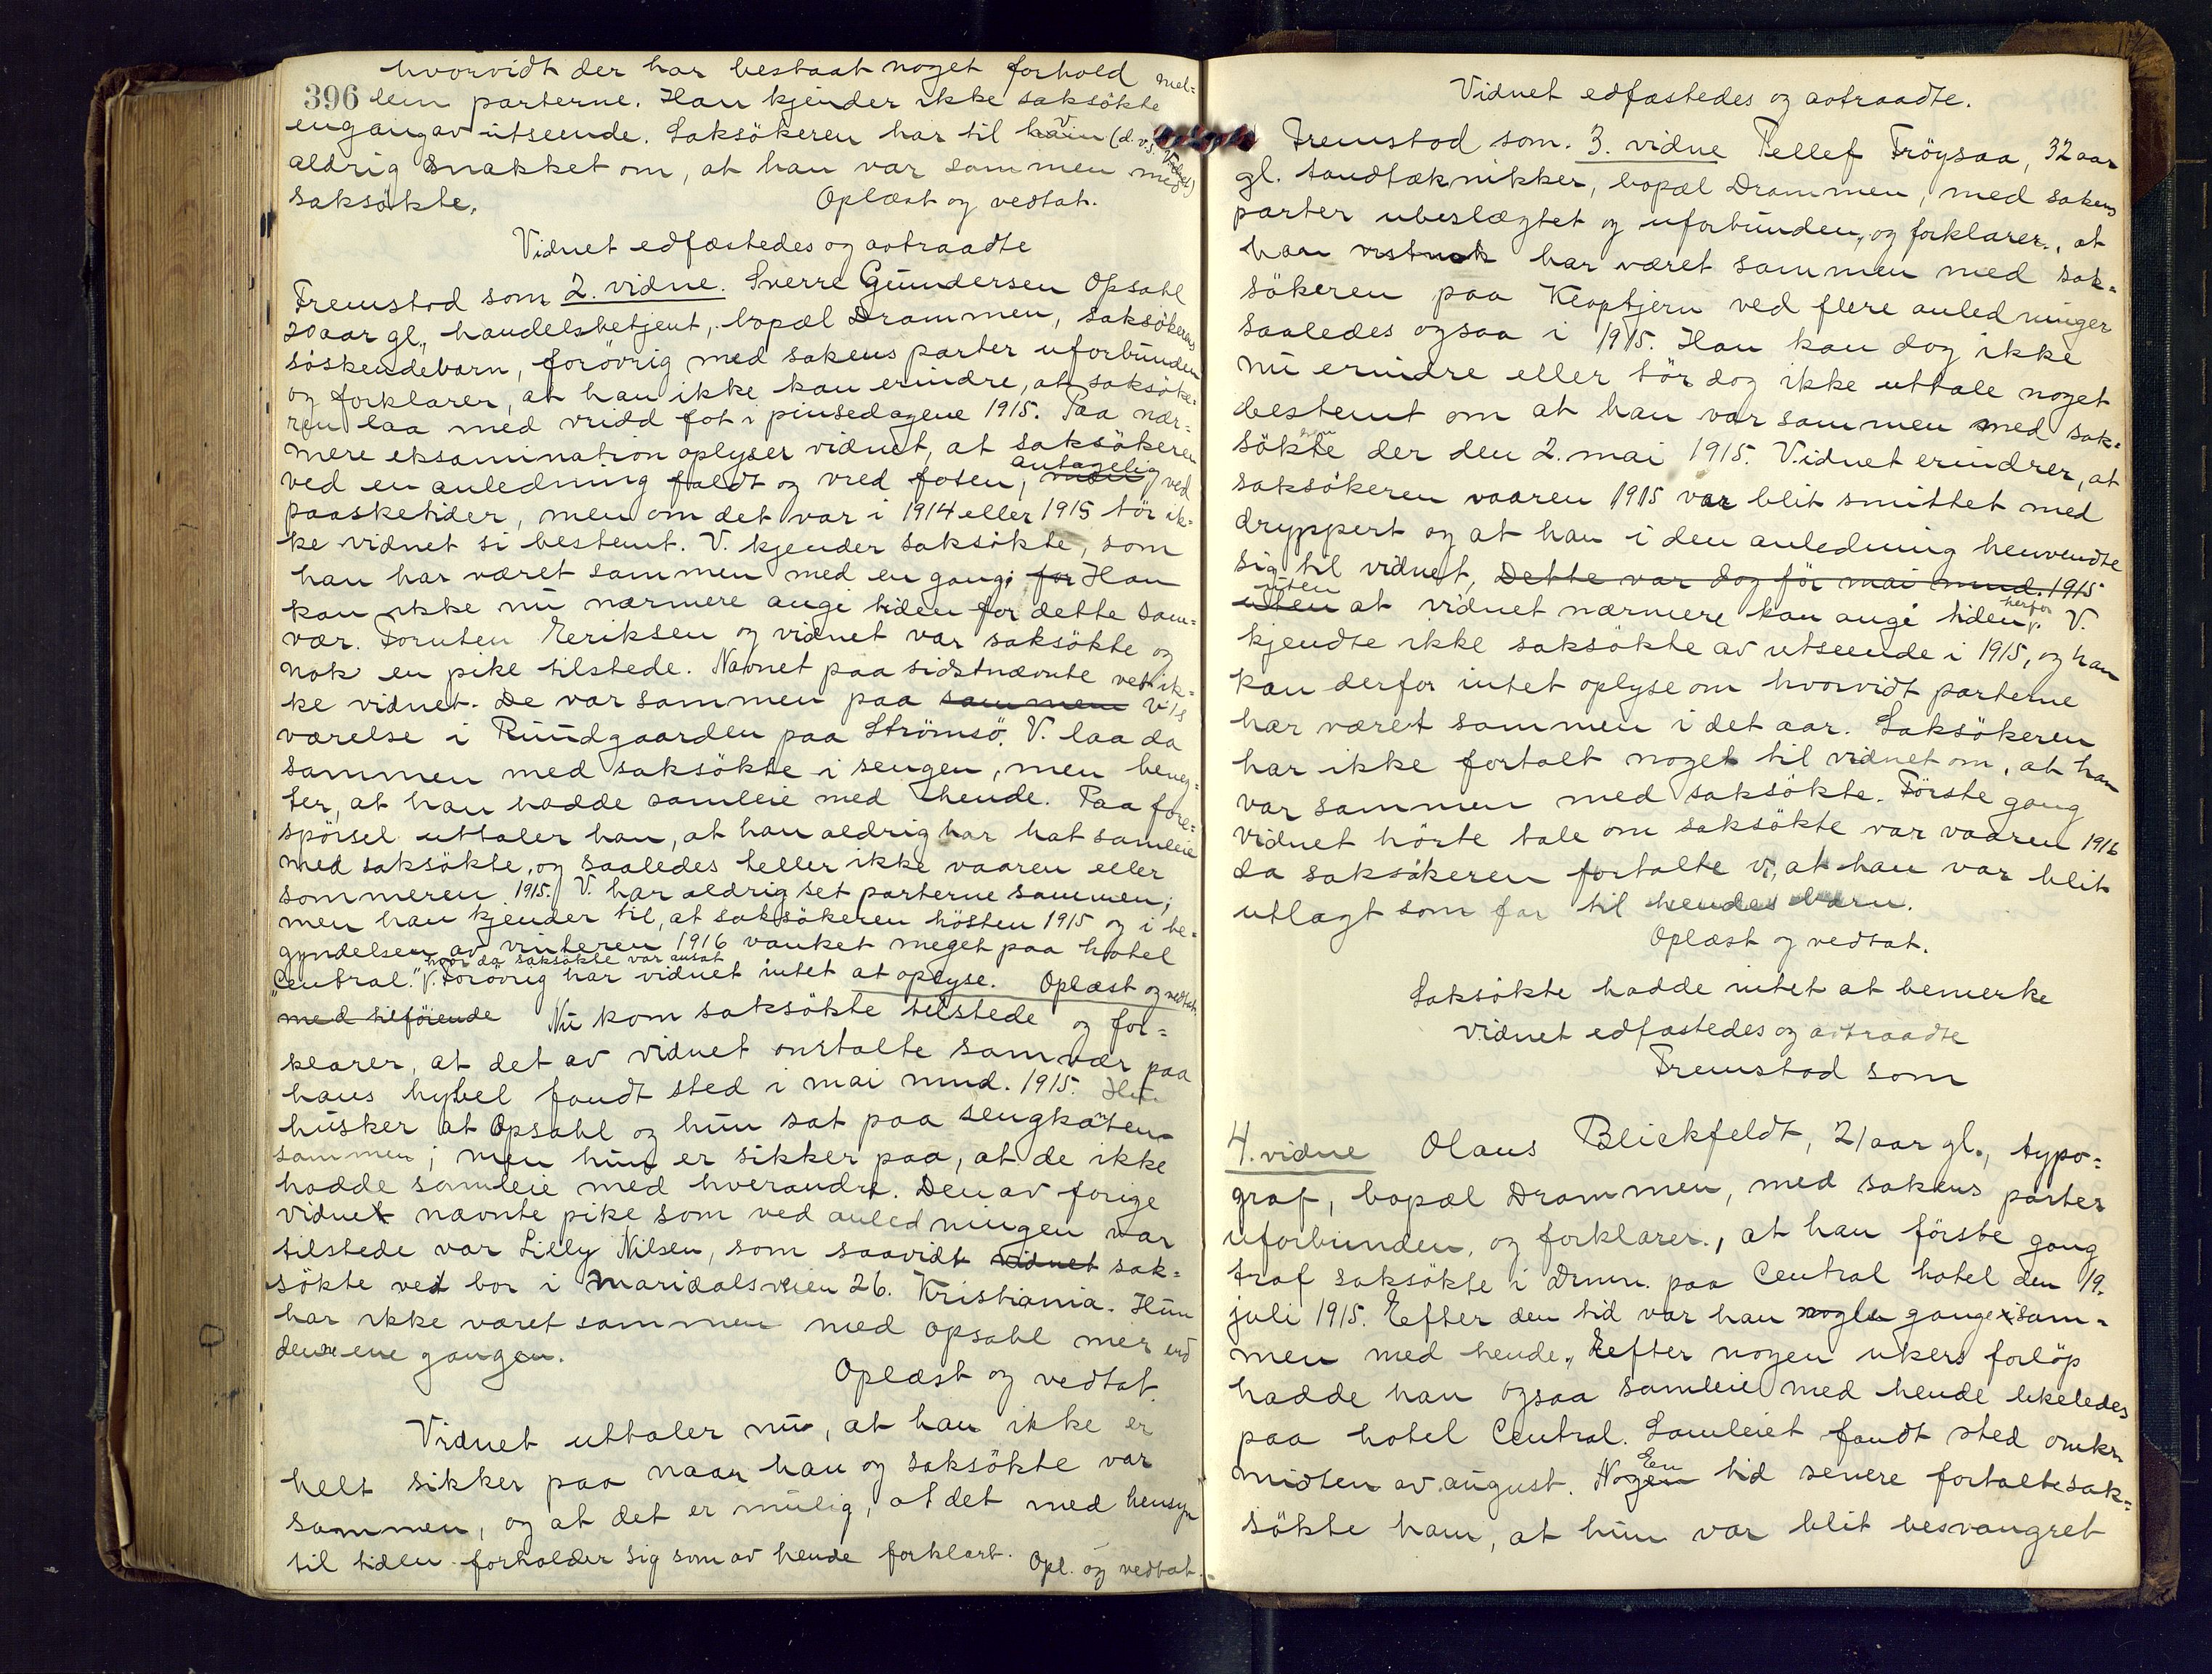 hvorvidt der har bestaat noget forhold mel=
396 lem parterne. Han kjender ikke saksökte
engang av utseende. Saksökeren har til ham (d.v.s. vidnet)
aldrig snakket om, at han var sammen med
saksökte. Oplæst og vedtat.
Vidnet edfæstedes og avtraadte
Fremstod som 2. vidne. Sverre Gundersen Opsahl
20 aar gl., handelsbetjent, bopæl Drammen, saksökerens
söskendebarn, forövrig med sakens parter uforbunden
og forklarer, at han ikke kan erindre, at saksöke=
ren laa med vridd fot i pinsedagene 1915. Paa nær=
mere eksamination oplyser vidnet, at saksökeren
ved en anledning faldt og vred foten, men antagelig ved
paasketider, men om det var i 1914 eller 1915 tör ik=
ke vidnet si bestemt. V. kjender saksökte, som
han har været sammen med en gang; for Han
kan ikke nu nærmere angi tiden for dette sam=
vær. Foruten Eeriksen og vidnet var saksökte og
nok en pike tilstede. Navnet paa sidstnævnte vet ik=
ke vidnet. De var sammen paa sammen V's
værelse i Rundgaarden paa Strömsö. V. laa da
sammen med saksökte i sengen, men beneg=
ter, at han hadde samleie med hende. Paa fore=
spörsel uttaler han, at han aldrig har hat samleie
med saksökte, og saaledes heller ikke vaaren eller
sommeren 1915. V. har aldrig set parterne sammen;
men han kjender til, at saksökeren hösten 1915 og i be=
gyndelsen av vinteren 1916 vanket meget paa hotel
"Central." hvor da saksökte var ansat V. Forövrig har vidnet intet at oplyse. Oplæst og vedtat.
med tilföiende Nu kom saksökte tilstede og for=
klarer, at det av vidnet omtalte samvær paa
hans hybel fandt sted i mai mnd. 1915. Hun
husker at Opsahl og hun sat paa sengkanten
sammen; men hun er sikker paa, at de ikke
hadde samleie med hverandre. Den av forige
vidnet nævnte pike som ved anledningen var
tilstede var Lilly Nilsen, som saavidt vidnet sak=
sökte vet bor i Maridalsveien 26. Kristiania. Hun
har ikke været sammen med Opsahl mer end
denne ene gangen.
Oplæst og vedtat.
Vidnet uttaler nu, at han ikke er
helt sikker paa naar han og saksökte var
sammen, og at det er mulig, at det med hensyn
til tiden forholder sig som av hende forklart. Opl. og vedtat.
Vidnet edfæstedes og avtraadte.
Fremstod som. 3. vidne Tellef Tröysaa, 32 aar
gl. tandtæknikker, bopæl Drammen, med sakens
parter ubeslægtet og uforbunden, og forklarer., at
han vistnok har været sammen med sak=
sökeren paa Kloptjern ved flere anledninger
saaledes ogsaa i 1915. Han kan dog ikke
nu erindre eller tör dog ikke uttale noget
bestemt om at han var sammen med sak=
sökte der den 2. mai 1915. Vidnet erindrer, at
saksökeren vaaren 1915 var blit smittet med
dryppert og at han i den anledning henvendte
sig til vidnet, Dette var dog för mai mnd. 1915
uten uten at vidnet nærmere kan angi tiden herfor. V.
kjendte ikke saksökte av utseende i 1915, og han
kan derfor intet oplyse om hvorvidt parterne
har været sammen i det aar. Saksökeren
har ikke fortalt noget til vidnet om, at han
var sammen med saksökte. Förste gang
vidnet hörte tale om saksökte var vaaren 1916
da saksökeren fortalte v, at han var blit
utlagt som far til hendes barn.
Oplæst og vedtat.
Saksökte hadde intet at bemerke
Vidnet edfæstedes og avtraadte
Fremstod som
4. vidne Olaus Blickfeldt, 21 aar gl., typo=
graf, bopæl Drammen, med sakens parter
uforbunden, og forklarer., at han förste gang
traf saksökte i Drmn. paa Central hotel den 19.
juli 1915. Eefter den tid var han nogle gange sam=
men med hende., Eefter nogen ukers forlöp
hadde han ogsaa samleie med hende likeledes
paa hotel Central. Samleiet fandt sted omkr.
midten av august. Nogen En tid senere fortalte sak=
sökte ham, at hun var blit besvangret